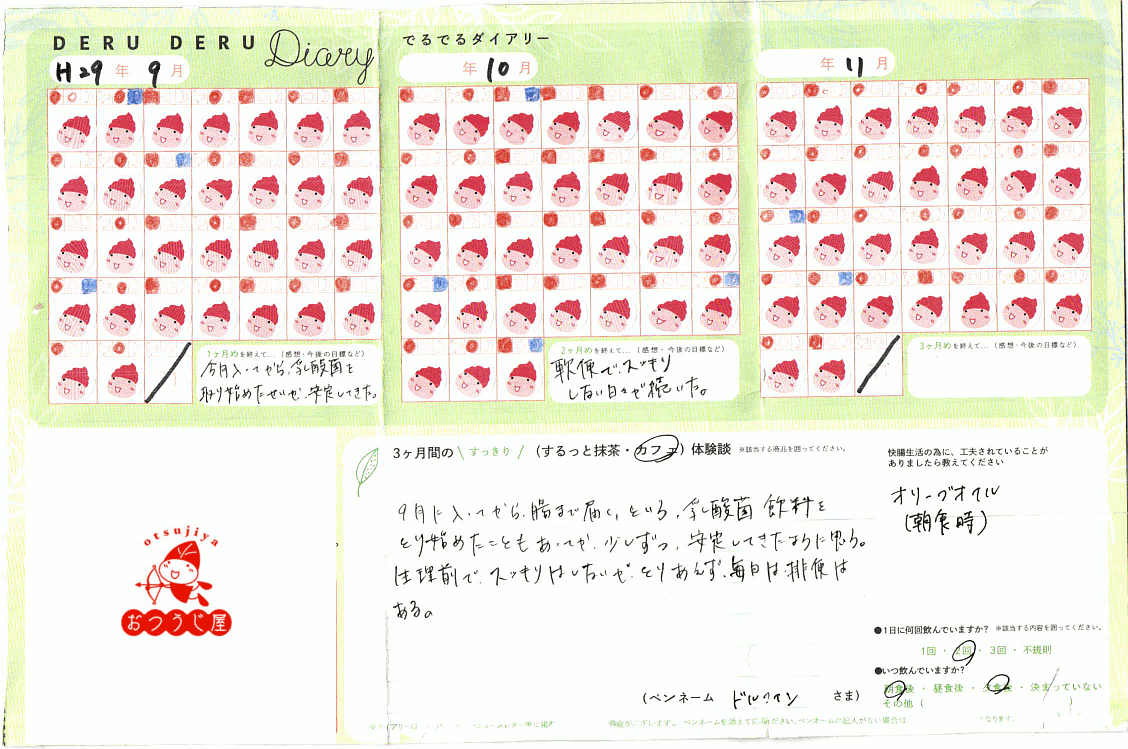 DERU DERU Diary でるでるダイアリー
H29年 9月
年 10月
年 11月
1ヶ月めを終えて…(感想・今後の目標など)
今月入ってから、乳酸菌を
取り始めたせいか、安定してきた。
2ヶ月めを終えて…(感想・今後の目標など)
軟便で、スッキリ
しない日々が続いた。
3ヶ月めを終えて…(感想・今後の目標など)
3ヶ月間の \ すっきり / (するっと抹茶・カフェ)体験談 ※該当する商品を囲ってください。
9月に入ってから、腸まで届く、という、乳酸菌飲料を
とり始めたこともあってか、少しずつ、安定してきたように思う。
生理前で、スッキリはしないが、とりあえず、毎日は、排便は
ある。
(ペンネーム さま)
快腸生活の為に、工夫されていることが
ありましたら教えてください
オリーブオイル
(朝食時)
●1日に何回飲んでいますか? ※該当する内容を囲ってください。
1回 ・ 2回 ・ 3回 ・ 不規則
●いつ飲んでいますか?
朝食後 ・ 昼食後 ・ 夕食後 ・ 決まっていない
その他(
otsujiya
おつうじ屋